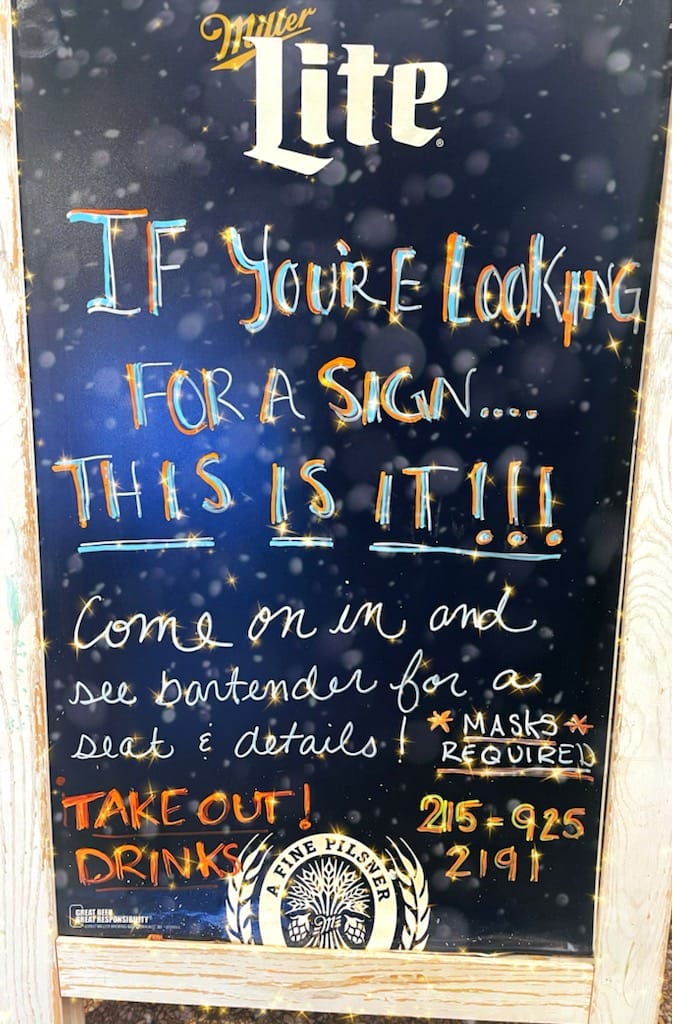 Miller
Lite
IF YOU'RE LOOKING
FOR A SIGN....
THIS IS IT!!!
Come on in and
see bartender for a
seat & details!
* MASKS *
REQUIRED
TAKE OUT!
DRINKS
215-925
2191
A FINE PILSNER
GREAT BEER
GREAT RESPONSIBILITY